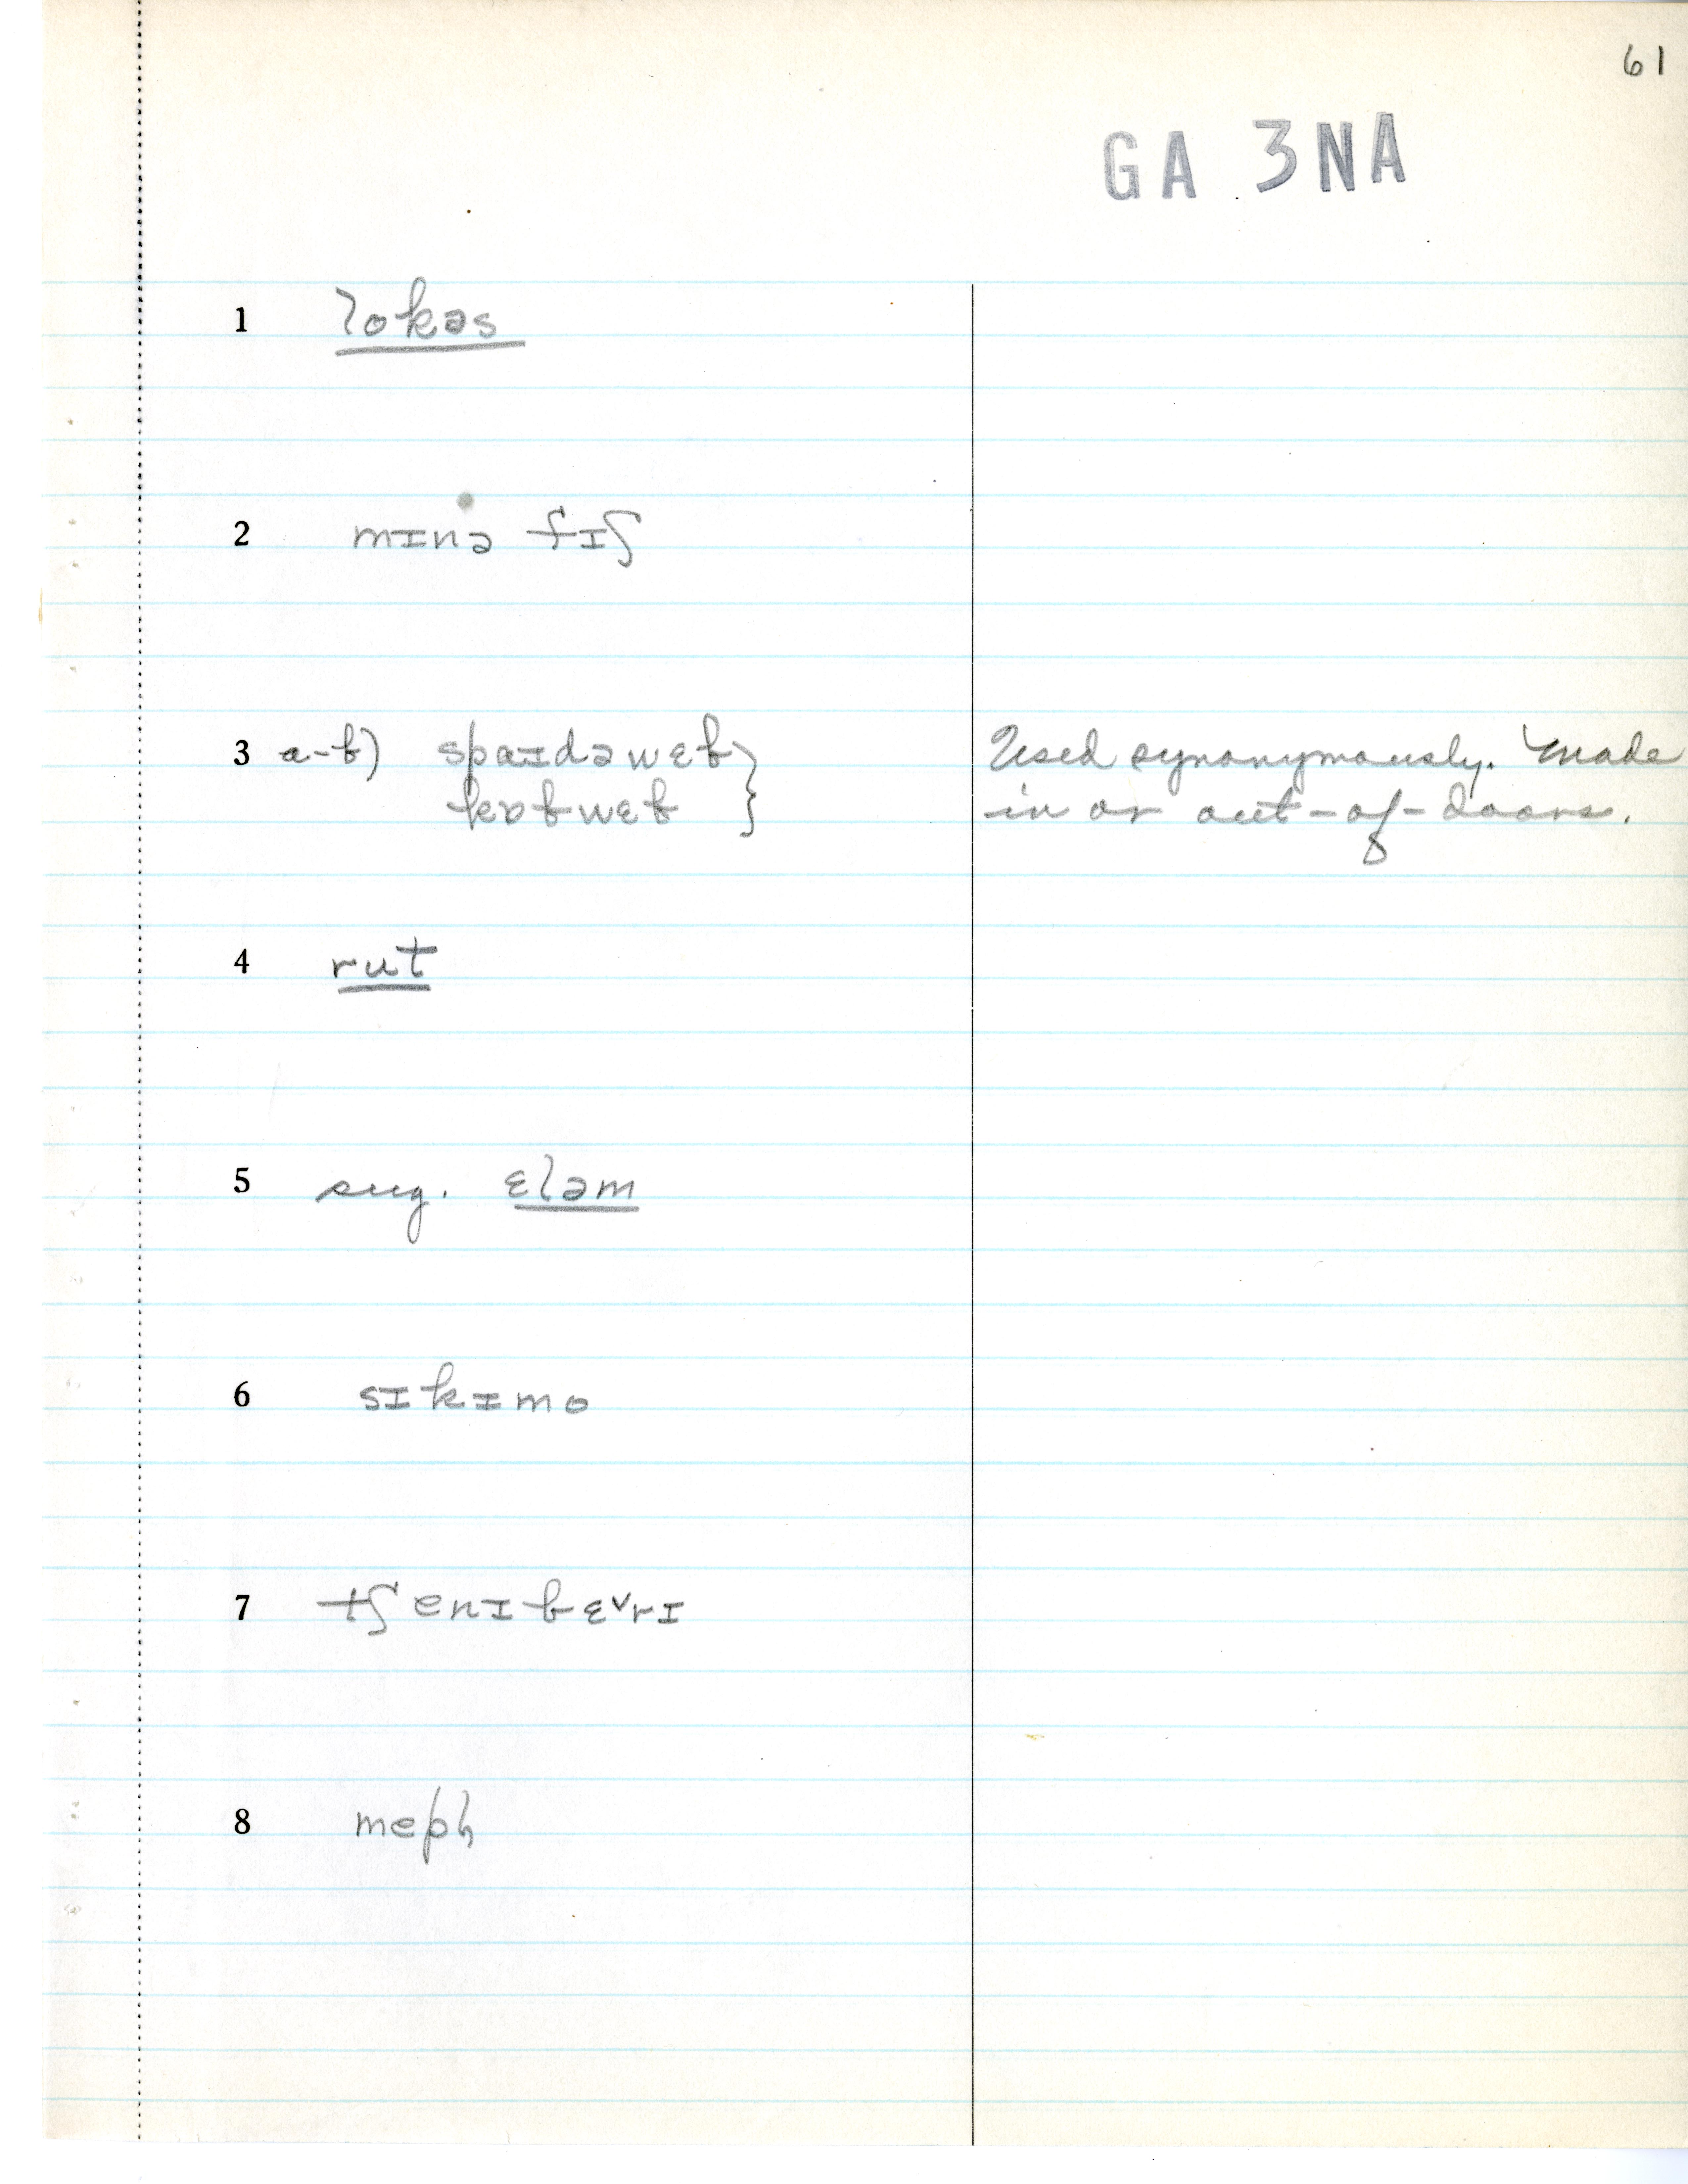 61
GA 3NA
1 lokəs
2 mɪnə fɪʃ
3 a-b) spaɪdəwɛb } Used synonymously. Made
kɒbwɛb in or out-of-doors.
4 rut
5 sug. ɛləm
6 sɪkɪmo
7 tʃenɪbɛ˅rɪ
8 mepḷ